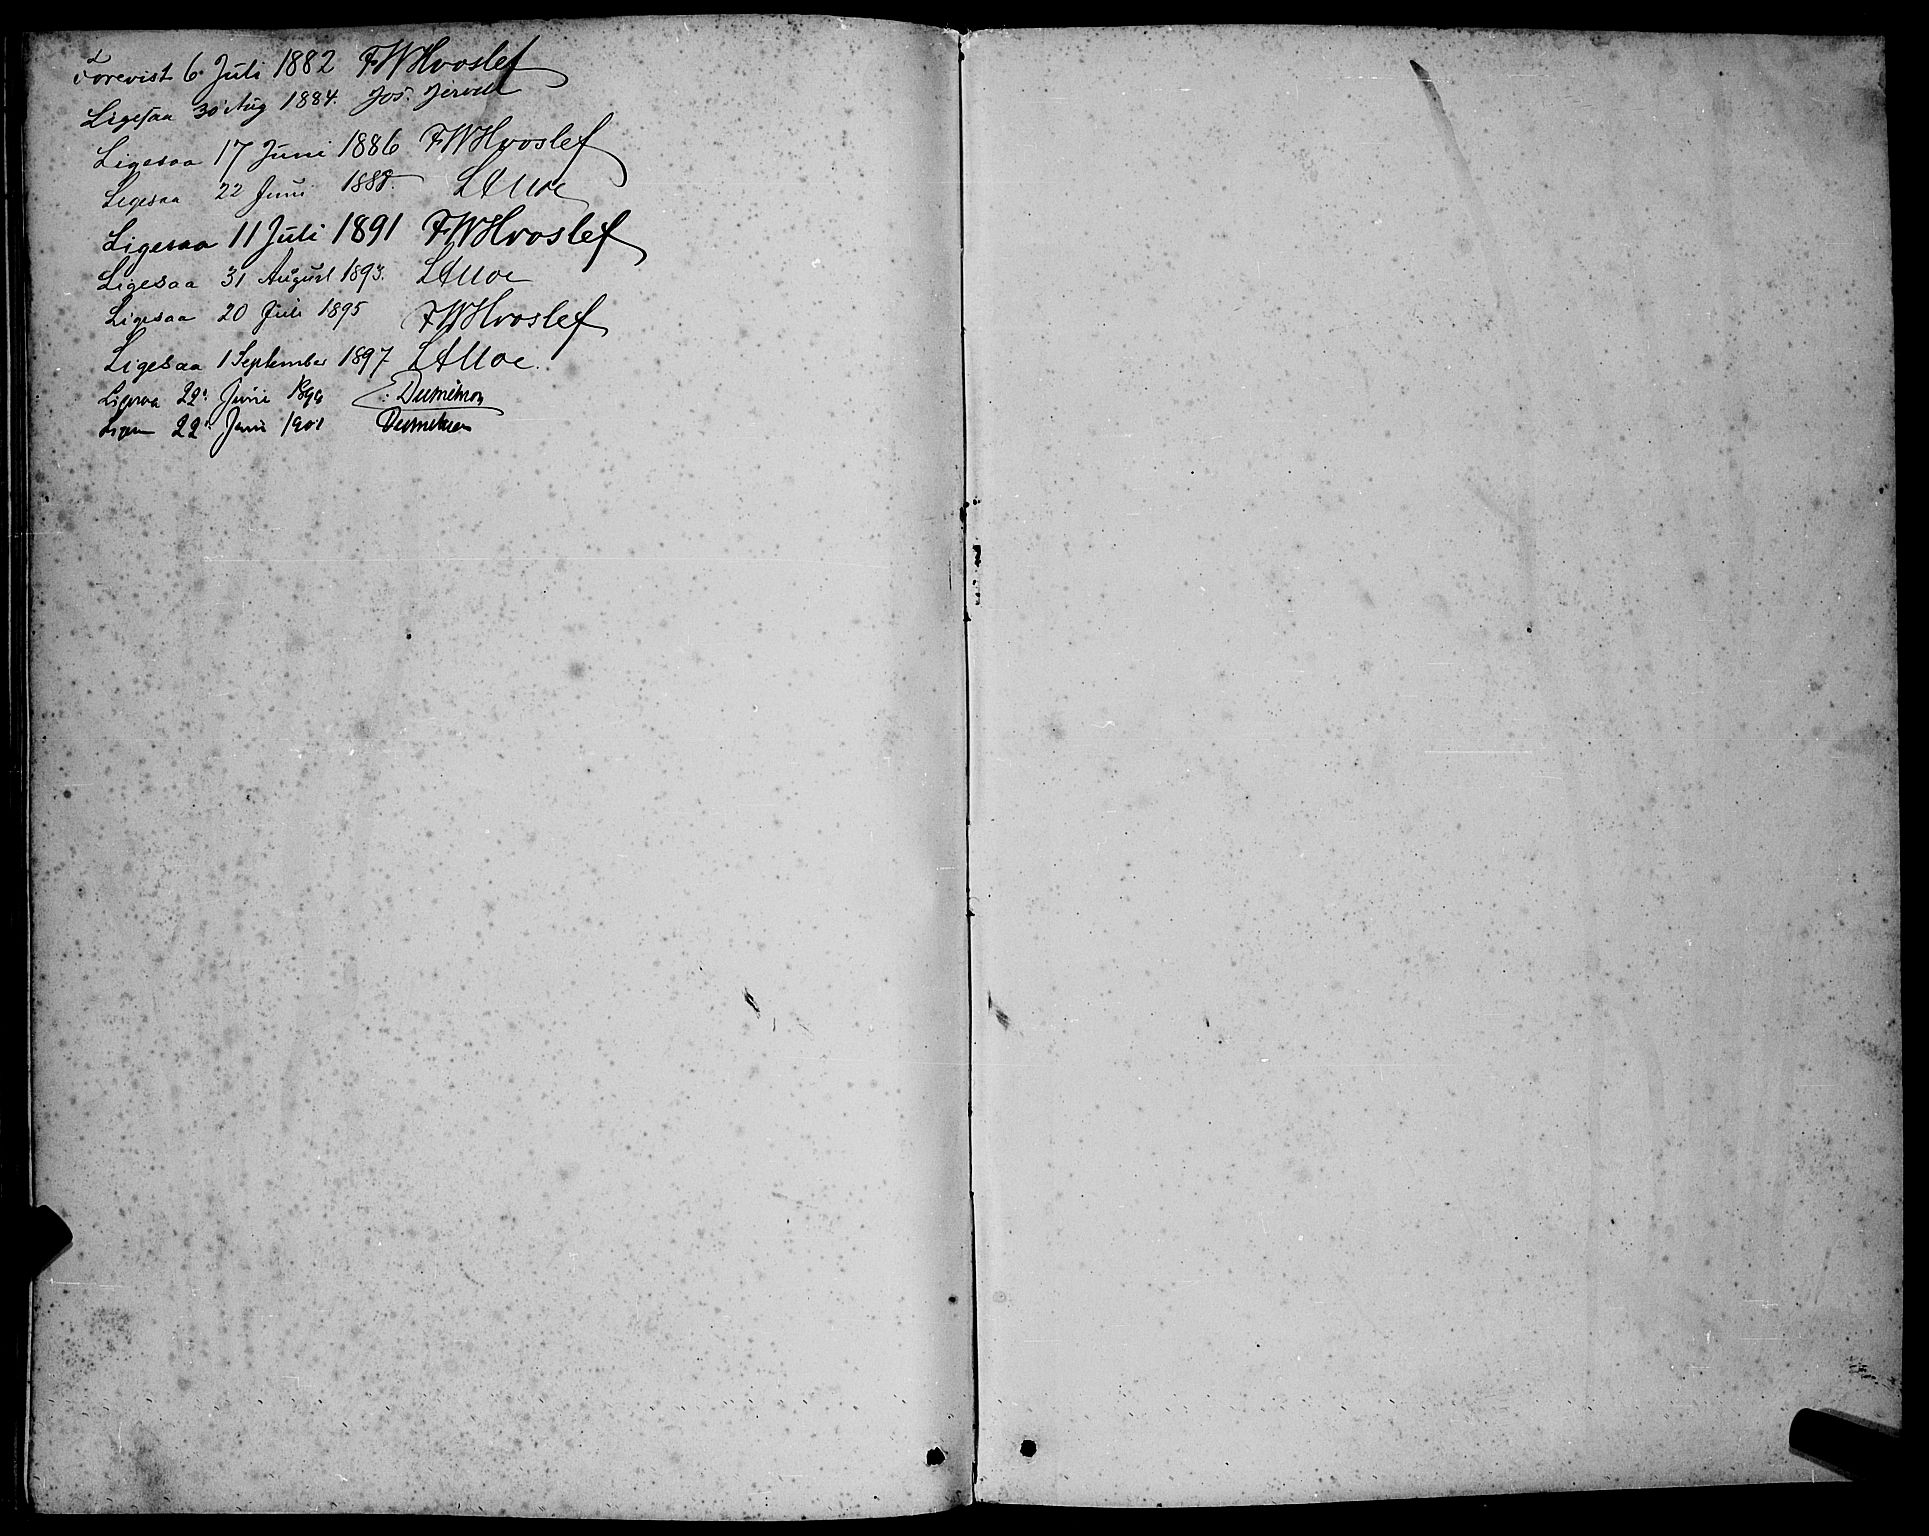 Forevist 6. Juli 1882 FWHvoslef
Ligesaa 30 Aug 1884. Jos. Jervell
Ligesaa 17 Juni 1886 FWHvoslef
Ligesaa 22 Juni 1888. LAMoe
Ligesaa 11 Juli 1891 FWHvoslef
Ligesaa 31 August 1893. LAMoe
Ligesaa 20 Juli 1895 FWHvoslef
Ligesaa 1 September 1897 LAMoe.
Ligesaa 22. Juni
22 Juni 1901